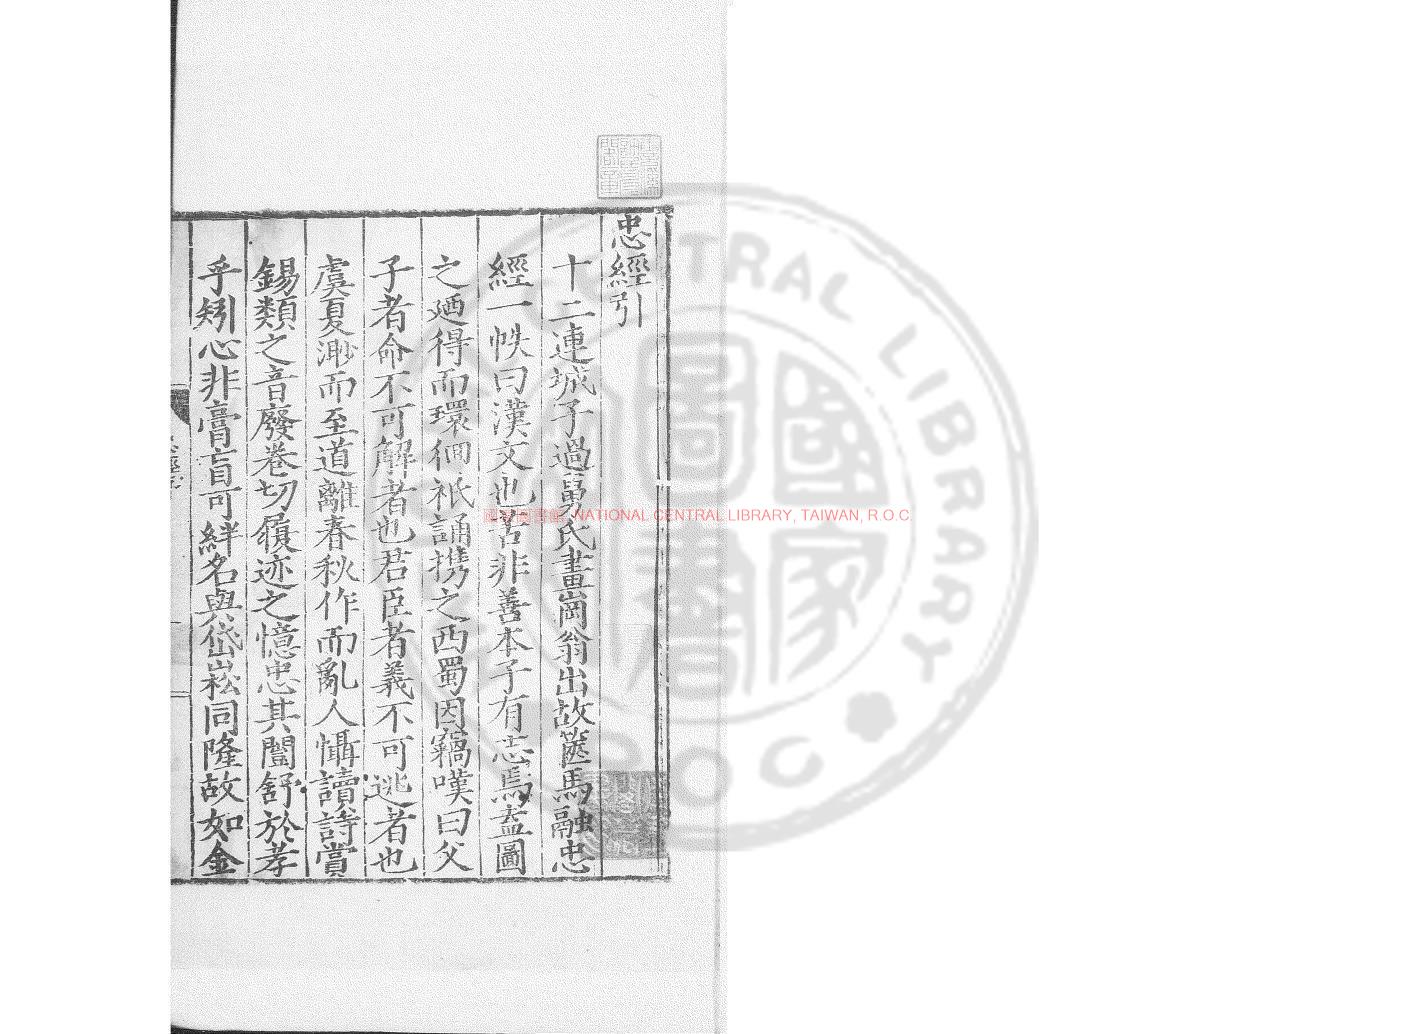 忠經引
十二連城子過舅氏畫崗翁出故篋馬融忠
經一帙曰漢文也苦非善本子有志焉盍圖
之廼得而環徊祇誦携之西蜀因竊嘆曰父
子者命不可解者也君臣者義不可逃者也
虞夏渺而至道離春秋作而亂人懾讀詩賞
錫類之音廢卷切履迹之憶忠其闓舒於孝
乎矧心非膏肓可絆名與岱崧同隆故如金
國家圖書館, NATIONAL CENTRAL LIBRARY, TAIWAN, R.O.C.
CENTRAL LIBRARY
ROC
國家圖書